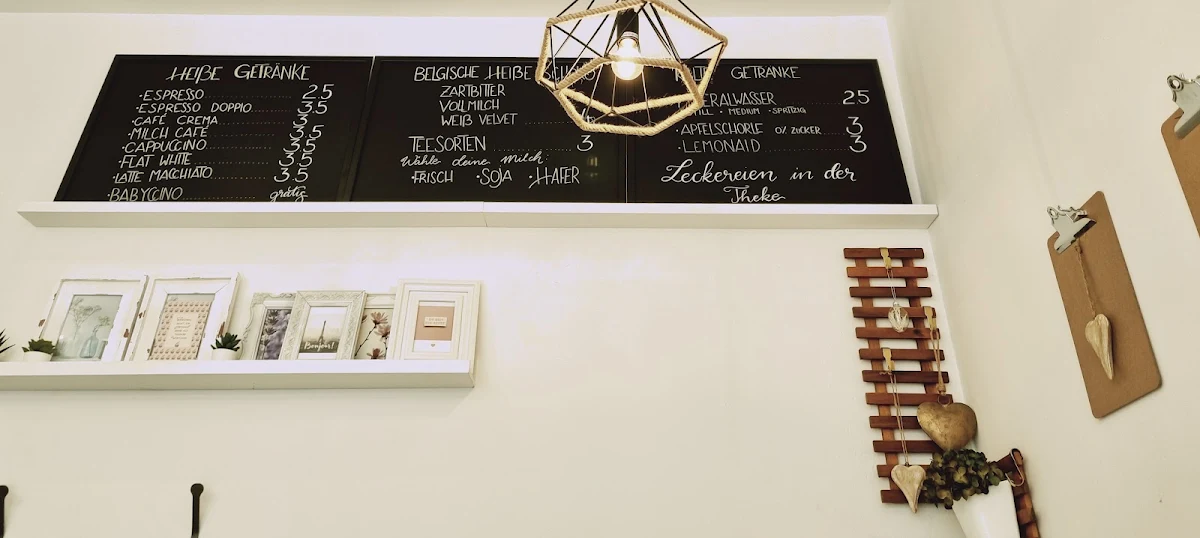 HEIßE GETRÄNKE
·ESPRESSO 2.5
·ESPRESSO DOPPIO 3.5
·CAFÉ CREMA 3
·MILCH CAFÉ 3.5
·CAPPUCCINO 3.5
·FLAT WHITE 3.5
·LATTE MACCHIATO 3.5
·BABYCCINO gratis
BELGISCHE HEIßE
ZARTBITTER
VOLLMILCH
WEIß VELVET
TEESORTEN 3
Wähle deine Milch:
·FRISCH ·SOJA ·HAFER
GETRÄNKE
ERALWASSER 2.5
STILL · MEDIUM · SPRITZIG
·APFELSCHORLE O/ ZUCKER 3
·LEMONAID 3
Leckereien in der
Theke
Bonjour!